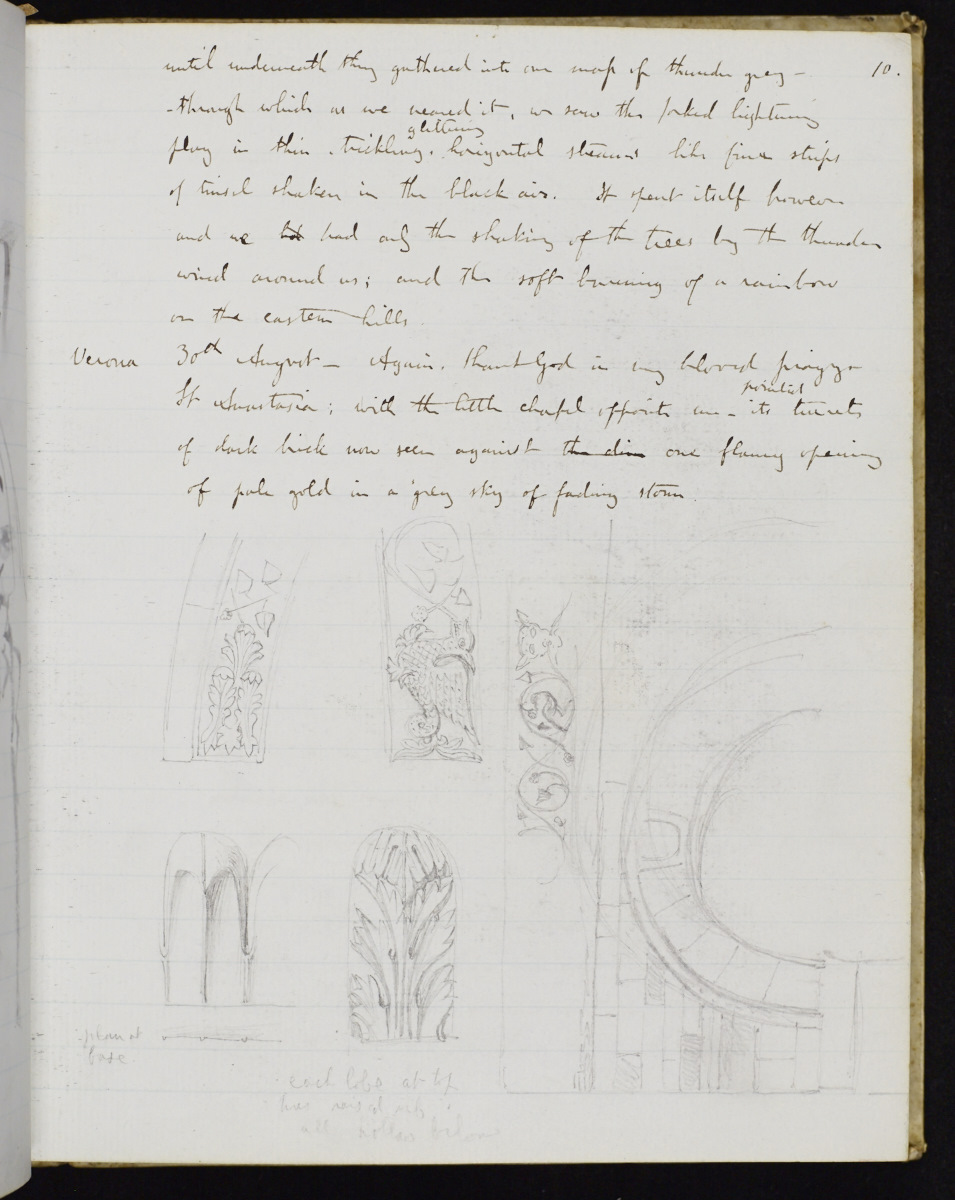 10.
until underneath they gathered into one map of thunder grey -
- through which as we neared it, we saw the forked lightning
glittering
play in thin, trickling, horizontal streams like fine strips
of tinsel shaken in the black air. It spent itself however
and we had only the shaking of the trees by the thunder
wind around us; and the soft burning of a rainbow
on the eastern hills.
Verona 30th August - Again, thank God in my beloved piazza
pointed
St Anastasia; with the little chapel opposite me - its turrets
of dark brick now seen against the dim one flamy opening
of pale gold in a grey sky of fading storm.
plan at
base
each lobe at top
has raised rib
all hollow below